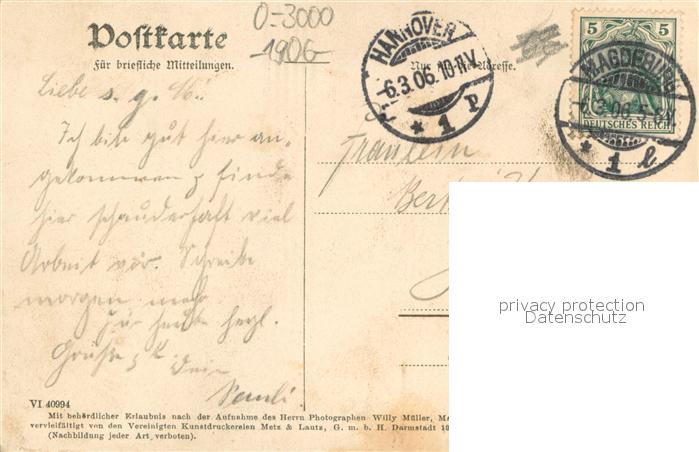 O-3000
1906
Postkarte
Für briefliche Mitteilungen.
Nur für die Adresse.
HANNOVER
6.3.06. 10-11 V.
* 1 P
5 5
DEUTSCHES REICH
MAGDEBURG
.3.06.
* 1 l
Liebe
Ich bin gut hier an-
gekommen & finde
hier schauderhaft viel
Arbeit vor. Schreibe
morgen mehr
Für heute herzl.
Grüße
Dein
Fräulein
VI 40994
Mit behördlicher Erlaubnis nach der Aufnahme des Herrn Photographen Willy Müller,
vervielfältigt von den Vereinigten Kunstdruckereien Metz & Lautz, G. m. b. H. Darmstadt
(Nachbildung jeder Art verboten).
privacy protection
Datenschutz